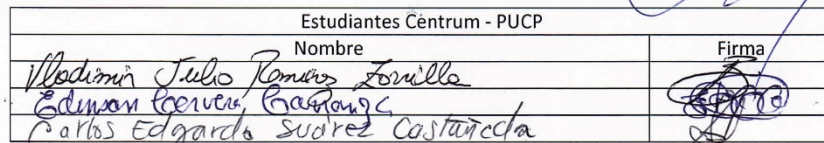 Estudiantes Centrum - PUCP
Nombre Firma
Vladimir Julio Ramirez Zorrilla
Edinson Cervera
Carlos Edgardo Suárez Castañeda